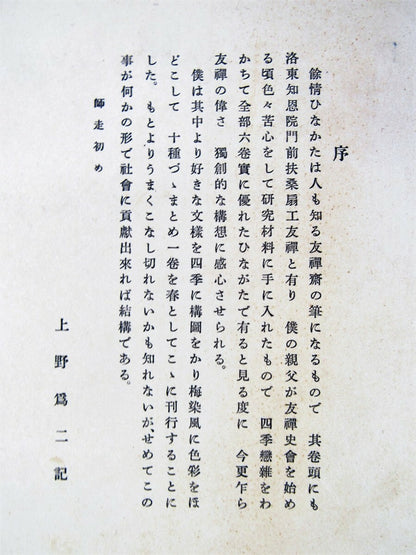 序
餘情ひなかたは人も知る友禪齋の筆になるもので　其卷頭にも
洛東知恩院門前扶桑扇工友禪と有り　僕の親父が友禪史會を始め
る頃色々苦心をして研究材料に手に入れたもので　四季戀雜をわ
かちて全部六卷實に優れたひながたで有ると見る度に　今更乍ら
友禪の偉さ　獨創的な構想に感心させられる。
僕は其中より好きな文樣を四季に構圖をかり梅染風に色彩をほ
どこして　十種づゝまとめ一卷を春としてこゝに刊行することに
した。もとよりうまくこなし切れないかも知れないが、せめてこの
事が何かの形で社會に貢獻出來れば結構である。
師走初め
上野爲二記